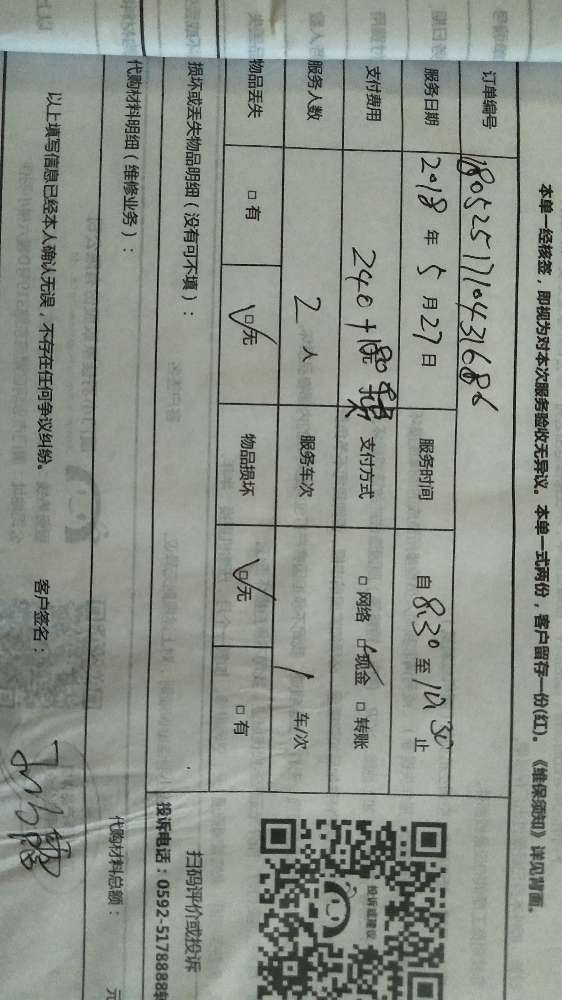 本单一经核签，即视为对本次服务验收无异议。本单一式两份，客户留存一份(红)。《维保须知》详见背面。
订单编号 1805251710431686
服务日期 2018年5月27日 服务时间 自8:30至10:30止
支付费用 240+180 支付方式 □网络 ☑现金 □转账
服务人数 2人 服务车次 1车/次
物品丢失 □有 ☑无 物品损坏 ☑无 □有
损坏或丢失物品明细（没有可不填）：
投诉或建议
扫码评价或投诉
投诉电话：0592-5178888转
代购材料明细（维修业务）：
代购材料总额： 元
以上填写信息已经本人确认无误，不存在任何争议纠纷。 客户签名：